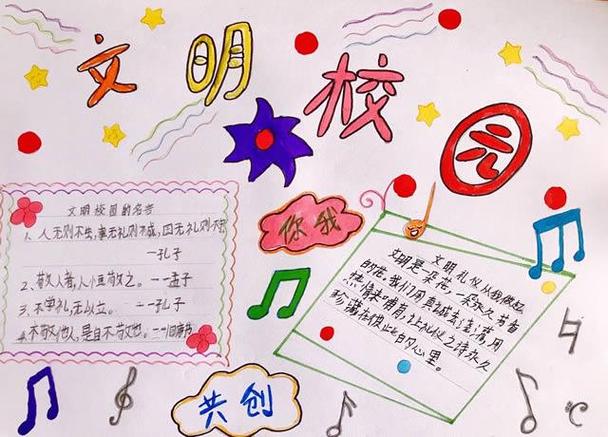 文明校园
文明校园的名言
1、人无则不生,事无礼则不成,国无礼则不宁
一孔子
2、敬人者,人恒敬之。一孟子
3、不学礼,无以立。一孔子
4、不敬他人,是自不敬也。一旧唐书
你我
共创
文明礼仪从我做起
文明是一朵花,一朵永久芳香
的花。我们用真诚去浇灌,用
热情来哺育,让礼仪之诗永久
珍藏在彼此的心里。